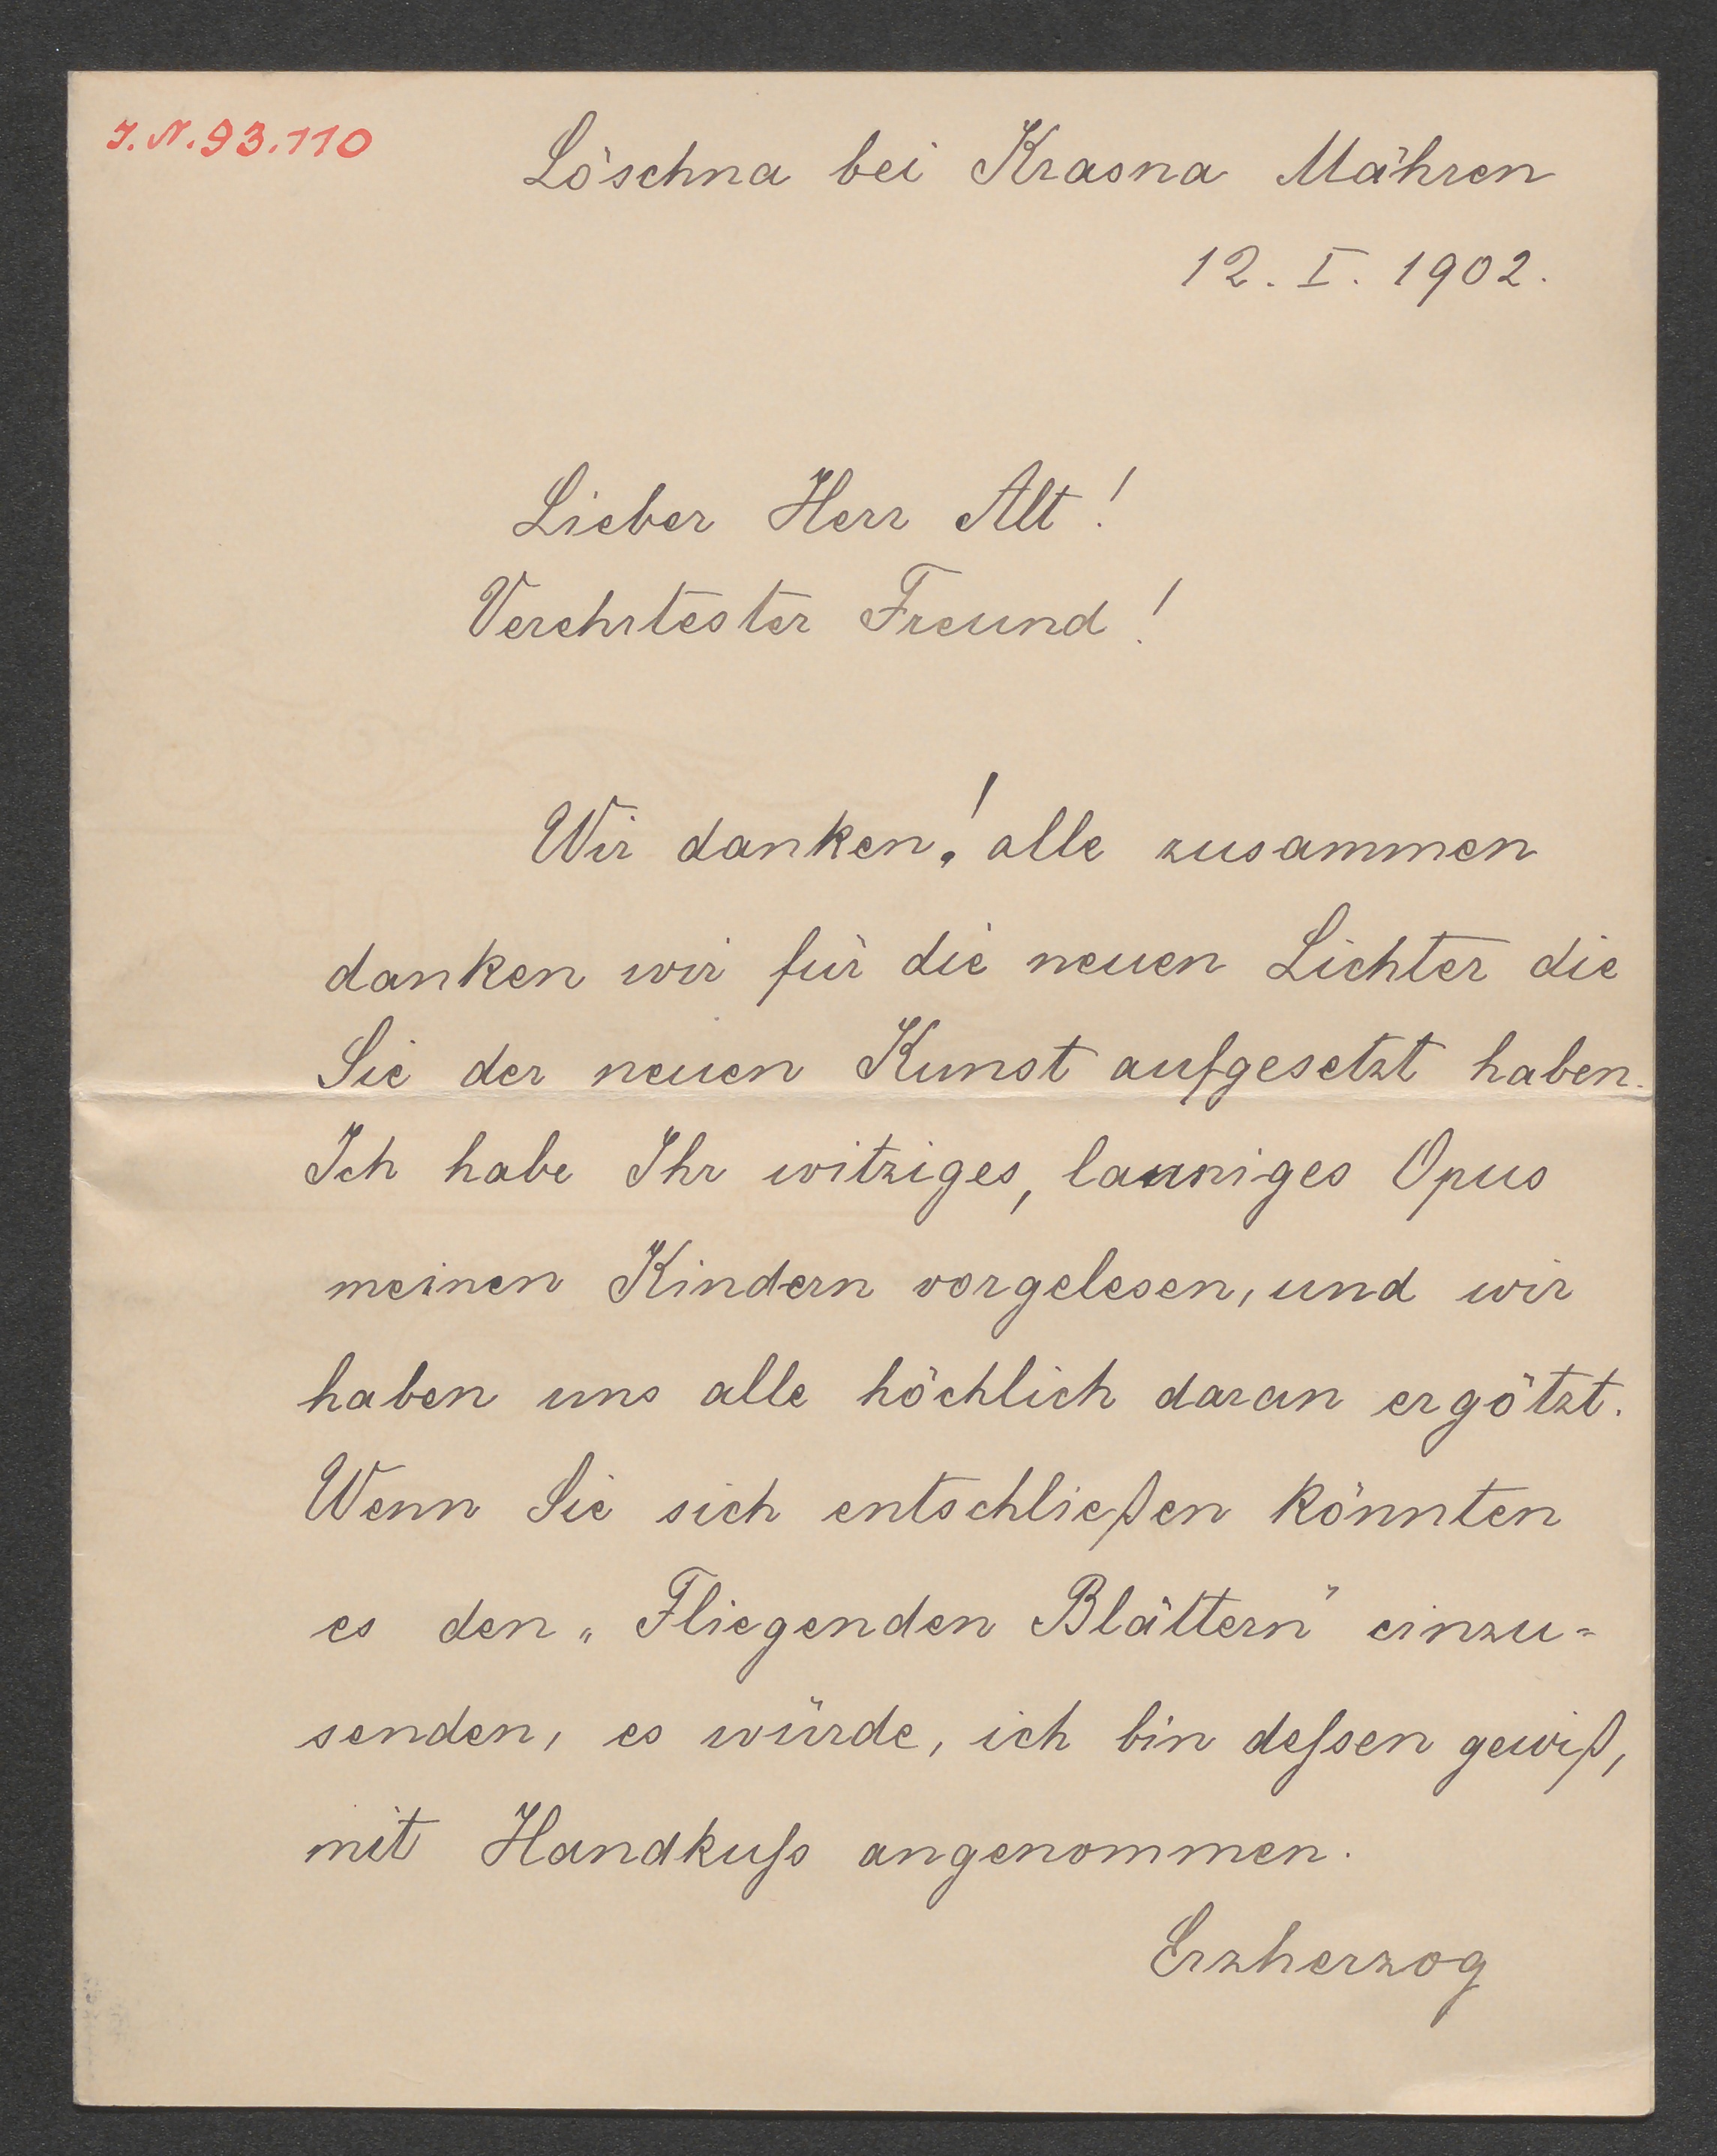 J. N. 93.110
Löschna bei Krasna Mähren
12. I. 1902.
Lieber Herr Alt!
Verehrtester Freund!
Wir danken! alle zusammen
danken wir für die neuen Lichter die
Sie der neuen Kunst aufgesetzt haben.
Ich habe Ihr witziges, launiges Opus
meinen Kindern vorgelesen, und wir
haben uns alle höchlich daran ergötzt.
Wenn Sie sich entschließen könnten
es den „Fliegenden Blättern" einzu=
senden, es würde, ich bin deſsen gewiß,
mit Handkuſs angenommen.
Erzherzog